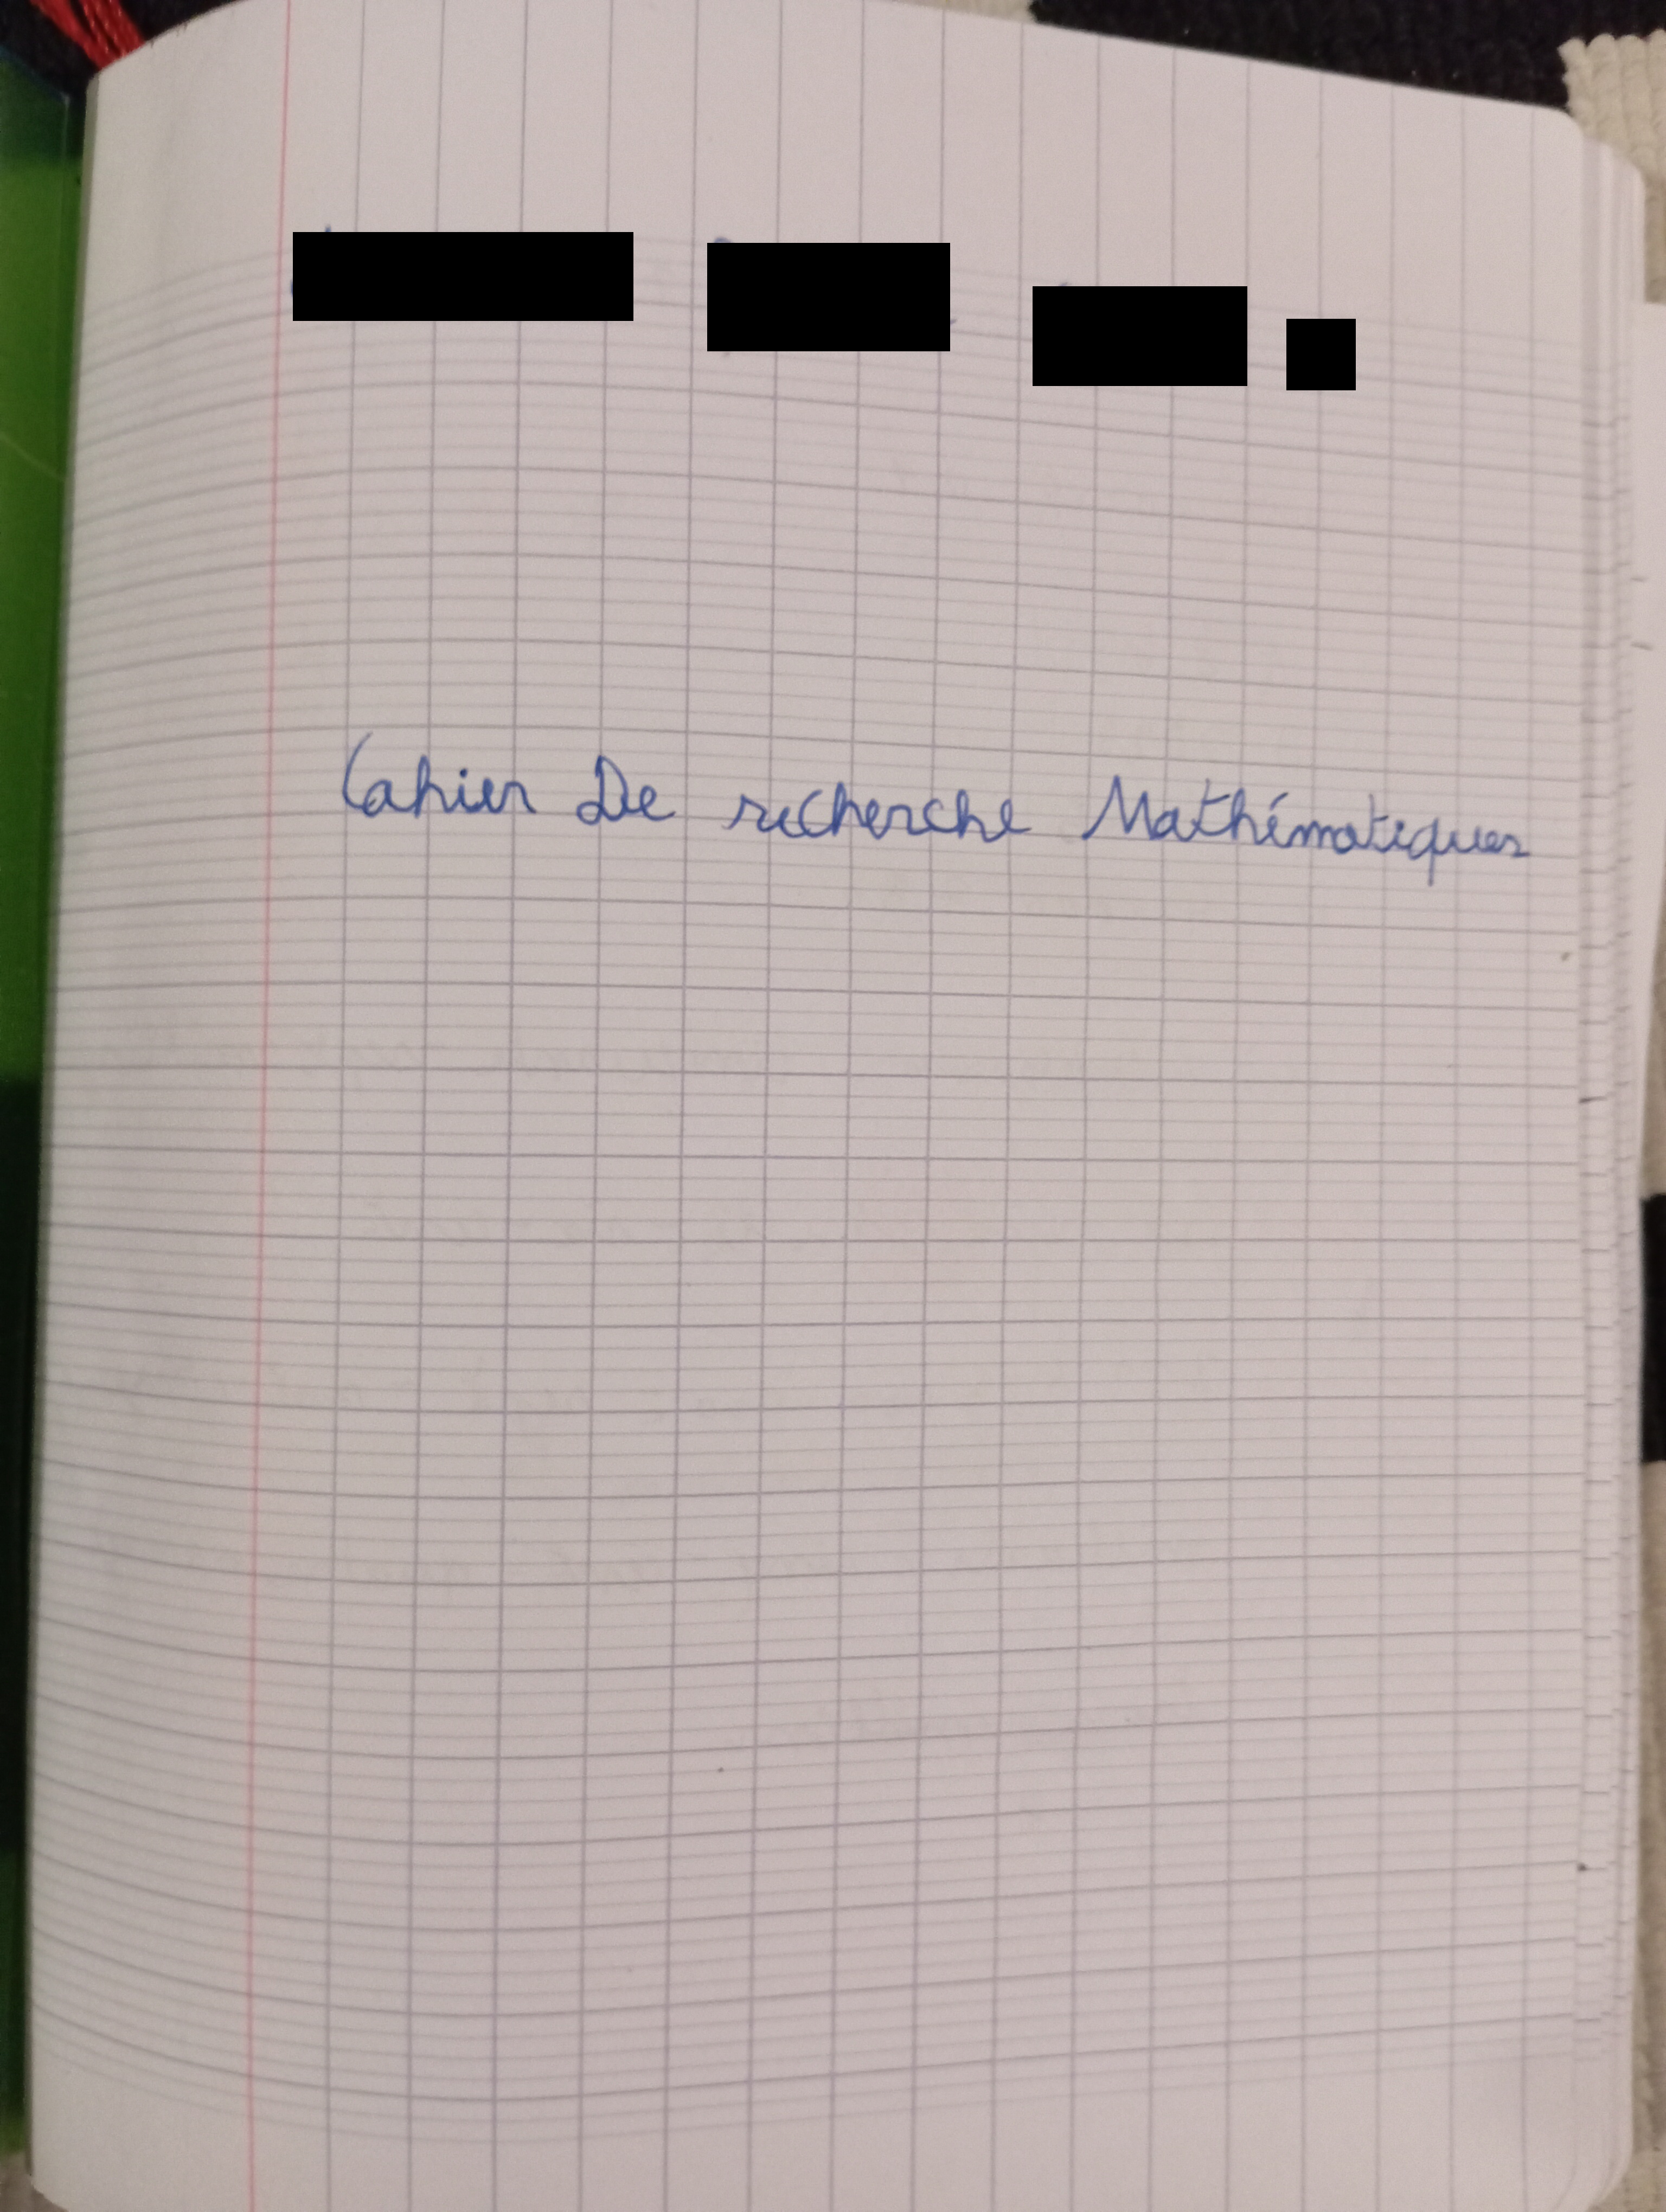 Cahier De recherche Mathématiques